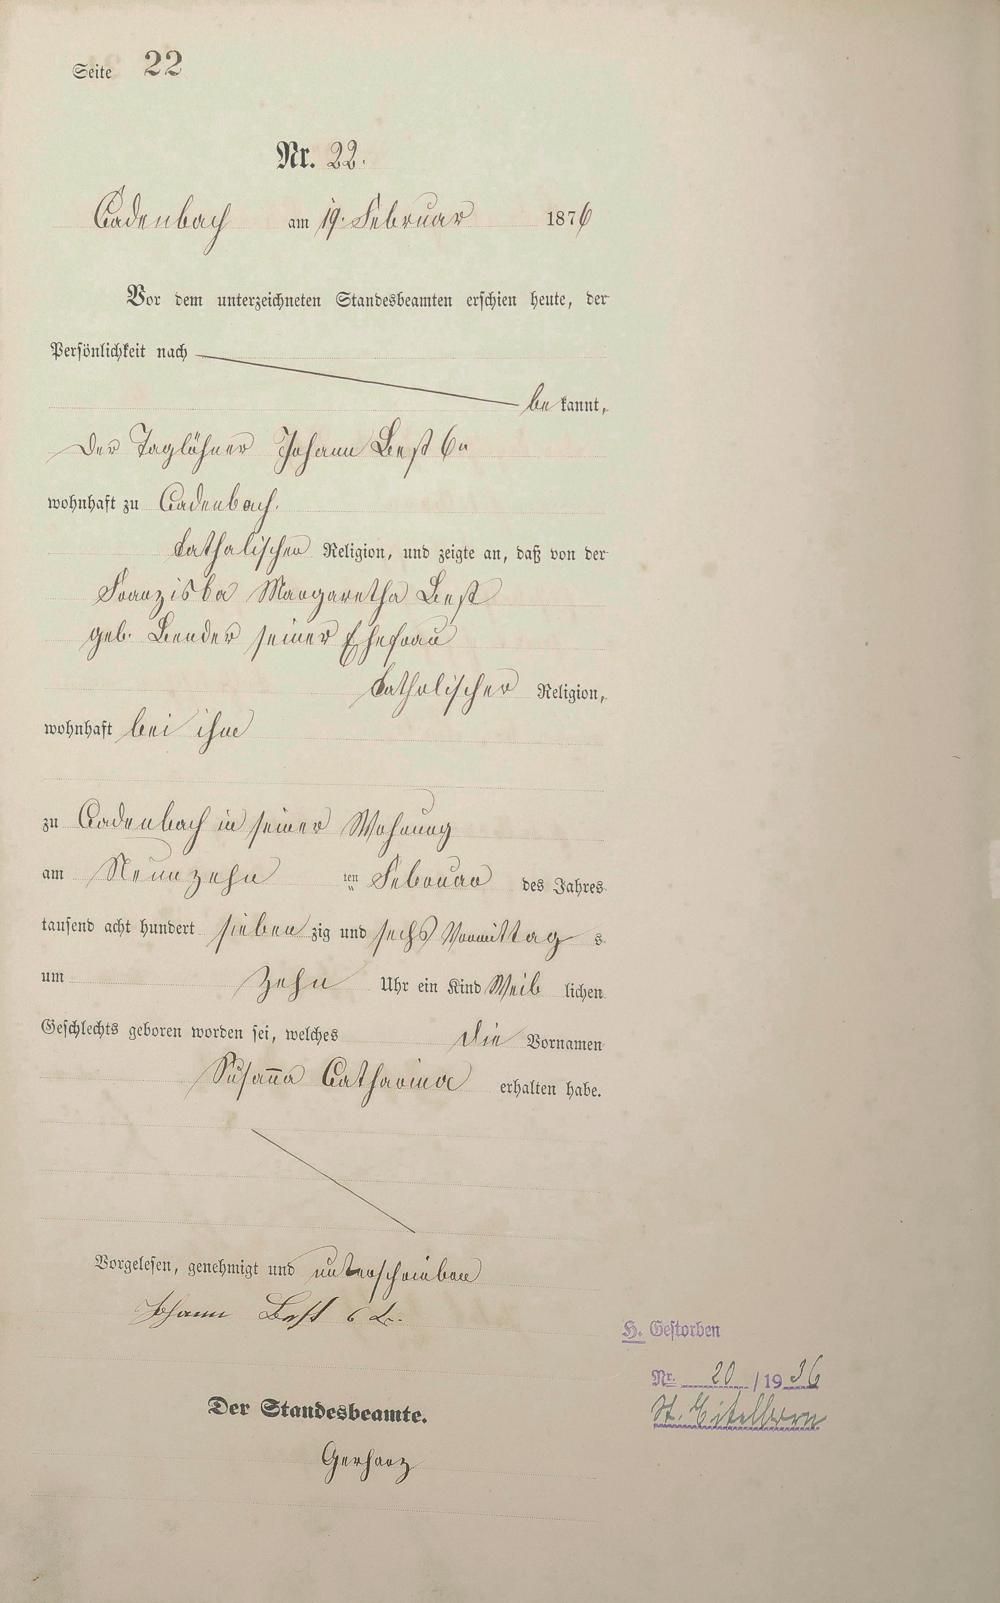 Seite 22
Nr. 22.
Cadenbach am 19. Februar 1876
Vor dem unterzeichneten Standesbeamten erschien heute, der
Persönlichkeit nach
bekannt,
der Taglöhner Johann Best 6n
wohnhaft zu Cadenbach.
katholischer Religion, und zeigte an, daß von der
Franziska Margaretha Best
geb. Bender seiner Ehefrau
katholischer Religion,
wohnhaft bei ihm
zu Cadenbach in seiner Wohnung
am Neunzehn ten Februar des Jahres
tausend acht hundert sieben zig und sechs Vormittag s
um Zehn Uhr ein Kind Weib lichen
Geschlechts geboren worden sei, welches die Vornamen
Susan̄a Catharina erhalten habe.
Vorgelesen, genehmigt und unterschrieben
Johann Best 6
Der Standesbeamte.
Gerharz
H. Gestorben
Nr. 20 / 1936
St. Eitelborn